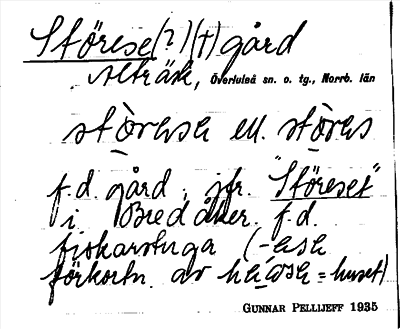 Störese(?)(†) gård
Alträsk, Överluleå sn. o. tg., Norrb. län
stòrase ell. stòres
f.d. gård; jfr. "Störeset"
i Bredåker. f.d.
fiskarstuga (-ese
förkortn. av = huset)
GUNNAR PELLIJEFF 1935